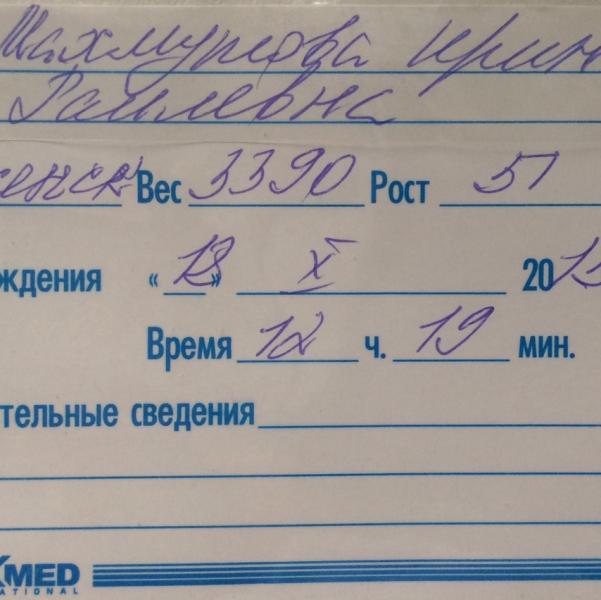 Махмутова Ирин
Раилевна
женск Вес 3390 Рост 51
ждения « 18 » X 20
Время 12 ч. 19 мин.
тельные сведения
XMED
ATIONAL